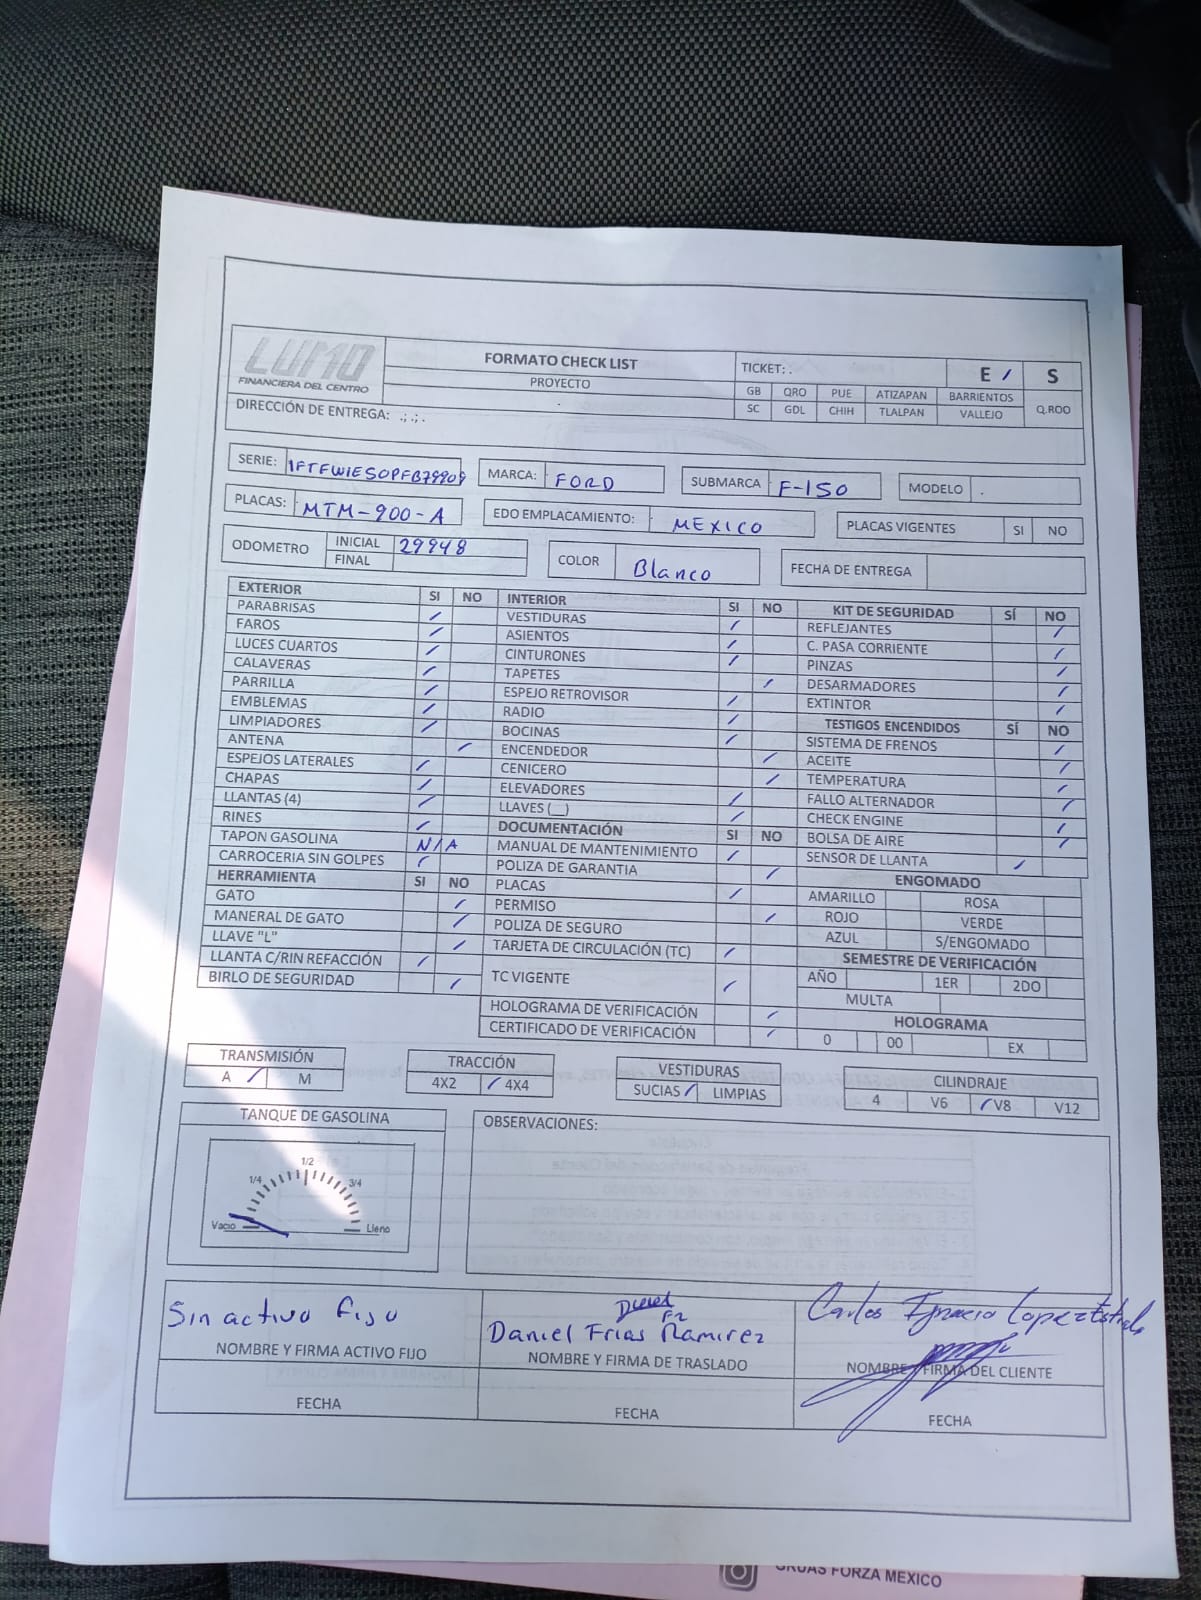 LUMO
FINANCIERA DEL CENTRO
FORMATO CHECK LIST
PROYECTO
TICKET: .
E / S
GB QRO PUE ATIZAPAN BARRIENTOS
SC GDL CHIH TLALPAN VALLEJO Q.ROO
DIRECCIÓN DE ENTREGA: .; .; .
SERIE: 1FTFW1E50PFB79909 MARCA: FORD SUBMARCA F-150 MODELO .
PLACAS: MTM-900-A EDO EMPLACAMIENTO: MEXICO PLACAS VIGENTES SI NO
ODOMETRO INICIAL 29948 COLOR Blanco FECHA DE ENTREGA
FINAL
EXTERIOR SI NO
PARABRISAS /
FAROS /
LUCES CUARTOS /
CALAVERAS /
PARRILLA /
EMBLEMAS /
LIMPIADORES /
ANTENA /
ESPEJOS LATERALES /
CHAPAS /
LLANTAS (4) /
RINES /
TAPON GASOLINA N/A
CARROCERIA SIN GOLPES /
HERRAMIENTA SI NO
GATO /
MANERAL DE GATO /
LLAVE "L" /
LLANTA C/RIN REFACCIÓN /
BIRLO DE SEGURIDAD /
INTERIOR SI NO
VESTIDURAS /
ASIENTOS /
CINTURONES /
TAPETES /
ESPEJO RETROVISOR /
RADIO /
BOCINAS /
ENCENDEDOR /
CENICERO /
ELEVADORES /
LLAVES (__) /
DOCUMENTACIÓN SI NO
MANUAL DE MANTENIMIENTO /
POLIZA DE GARANTIA /
PLACAS /
PERMISO /
POLIZA DE SEGURO
TARJETA DE CIRCULACIÓN (TC) /
TC VIGENTE /
HOLOGRAMA DE VERIFICACIÓN /
CERTIFICADO DE VERIFICACIÓN /
KIT DE SEGURIDAD SÍ NO
REFLEJANTES /
C. PASA CORRIENTE /
PINZAS /
DESARMADORES /
EXTINTOR /
TESTIGOS ENCENDIDOS SÍ NO
SISTEMA DE FRENOS /
ACEITE /
TEMPERATURA /
FALLO ALTERNADOR /
CHECK ENGINE /
BOLSA DE AIRE /
SENSOR DE LLANTA /
ENGOMADO
AMARILLO ROSA
ROJO VERDE
AZUL S/ENGOMADO
SEMESTRE DE VERIFICACIÓN
AÑO 1ER 2DO
MULTA
HOLOGRAMA
0 00 EX
TRANSMISIÓN
A / M
TRACCIÓN
4X2 / 4X4
VESTIDURAS
SUCIAS / LIMPIAS
CILINDRAJE
4 V6 / V8 V12
TANQUE DE GASOLINA
1/2
1/4 3/4
Vacio Lleno
OBSERVACIONES:
Sin activo fijo
NOMBRE Y FIRMA ACTIVO FIJO
FECHA
Daniel Frias Ramirez
NOMBRE Y FIRMA DE TRASLADO
FECHA
Carlos Ignacio Lopez Estrada
NOMBRE Y FIRMA DEL CLIENTE
FECHA
GRUAS FORZA MEXICO